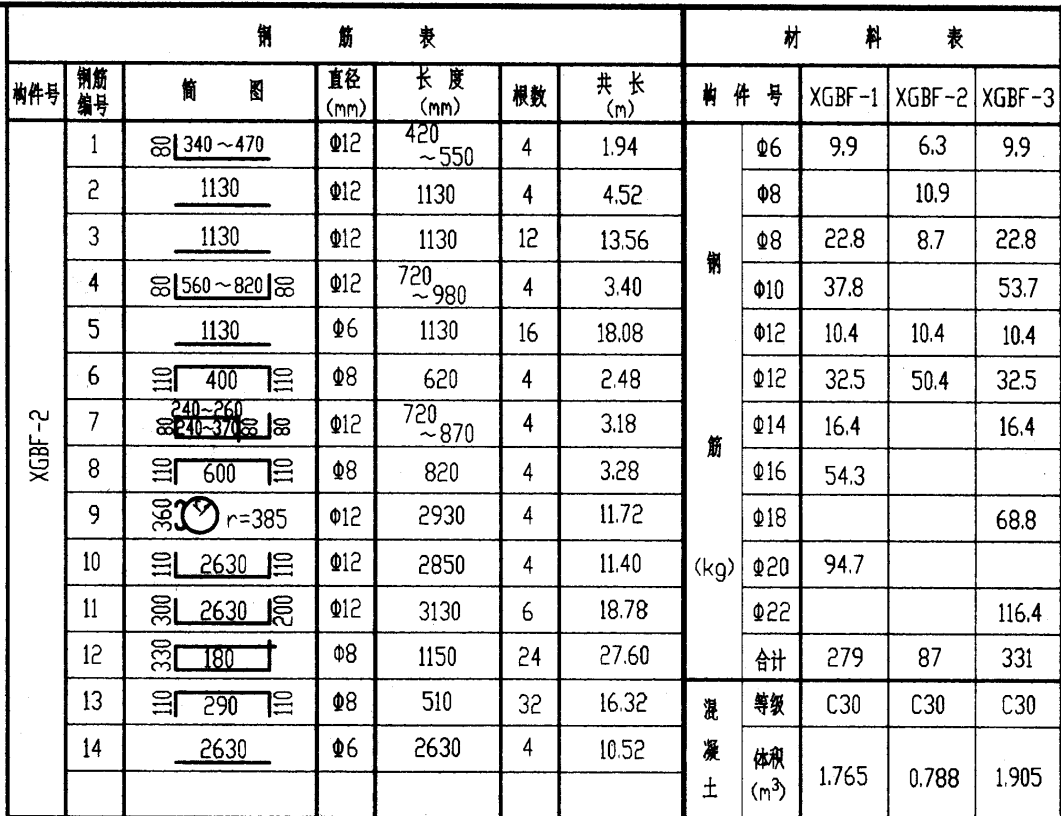 钢 筋 表 材 料 表
构件号 钢筋编号 简 图 直径(mm) 长 度(mm) 根数 共 长(m) 构 件 号 XGBF-1 XGBF-2 XGBF-3
XGBF-2
1 80 340~470 Φ12 420~550 4 1.94
2 1130 Φ12 1130 4 4.52
3 1130 Φ12 1130 12 13.56
4 80 560~820 80 Φ12 720~980 4 3.40
5 1130 Φ6 1130 16 18.08
6 110 400 110 Φ8 620 4 2.48
7 240~260 80 240~370 80 80 Φ12 720~870 4 3.18
8 110 600 110 Φ8 820 4 3.28
9 360 r=385 Φ12 2930 4 11.72
10 110 2630 110 Φ12 2850 4 11.40
11 300 2630 200 Φ12 3130 6 18.78
12 330 180 Φ8 1150 24 27.60
13 110 290 110 Φ8 510 32 16.32
14 2630 Φ6 2630 4 10.52
钢 筋 (kg)
Φ6 9.9 6.3 9.9
Φ8 10.9
Φ8 22.8 8.7 22.8
Φ10 37.8 53.7
Φ12 10.4 10.4 10.4
Φ12 32.5 50.4 32.5
Φ14 16.4 16.4
Φ16 54.3
Φ18 68.8
Φ20 94.7
Φ22 116.4
合计 279 87 331
混凝土
等级 C30 C30 C30
体积(m³) 1.765 0.788 1.905